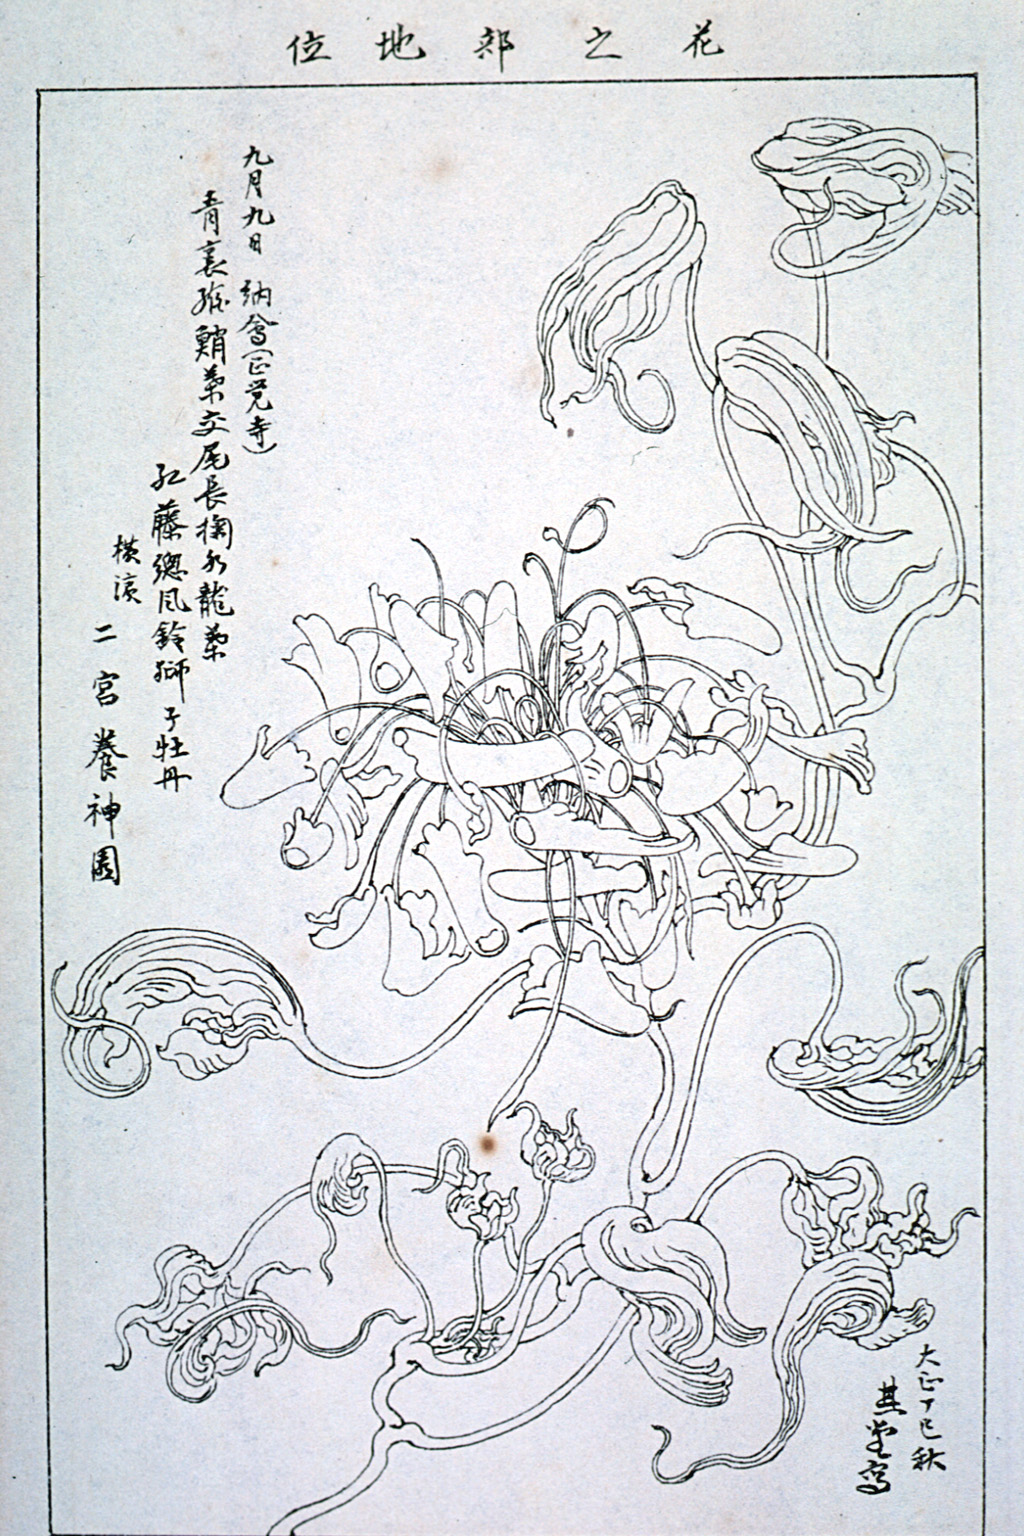 花之部地位
九月九日 納會(正覚寺)
青裏 葉交尾長掬水龍葉
紅藤總風鈴獅子牡丹
横濱 二宮養神園
大正丁巳秋
其堂寫